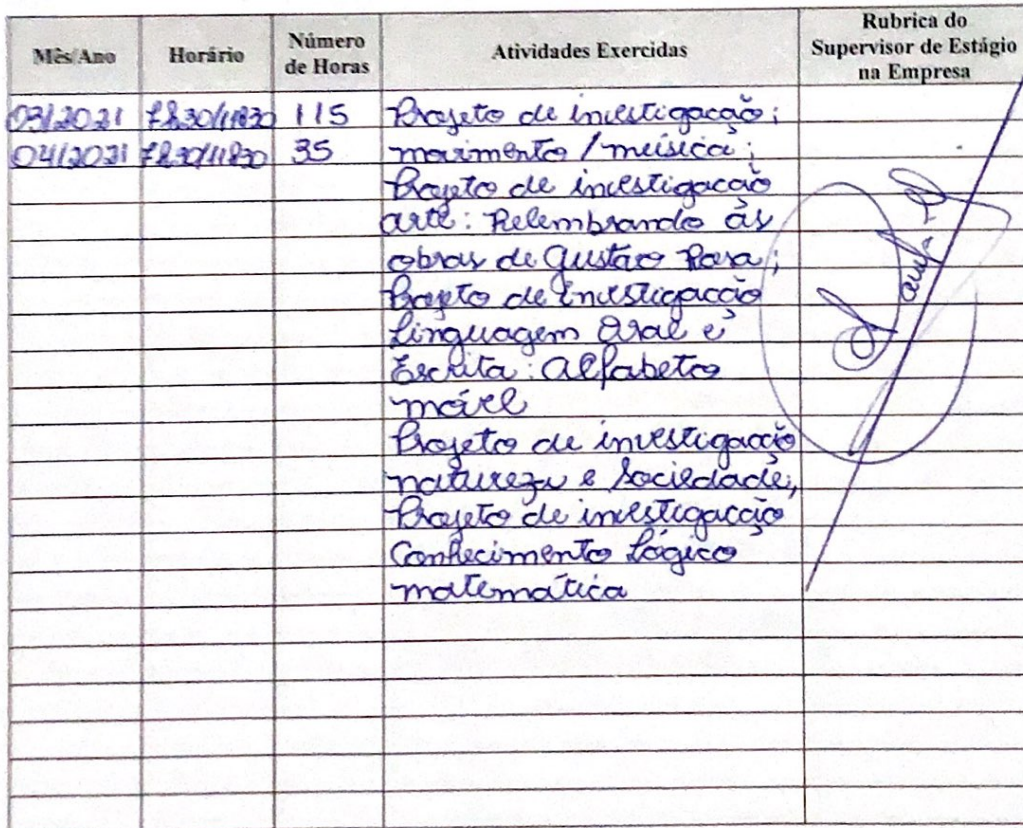 Mês/Ano Horário Número de Horas Atividades Exercidas Rubrica do Supervisor de Estágio na Empresa
03/2021 7h30/11h30 115 Projeto de investigação;
04/2021 7h30/11h30 35 movimento / música;
Projeto de investigação
arte: Relembrando às
obras de Gustavo Rosa;
Projeto de investigação
Linguagem Oral e
Escrita: Alfabeto
móvel
Projeto de investigação
natureza e Sociedade;
Projeto de investigação
Conhecimento Lógico
matemática